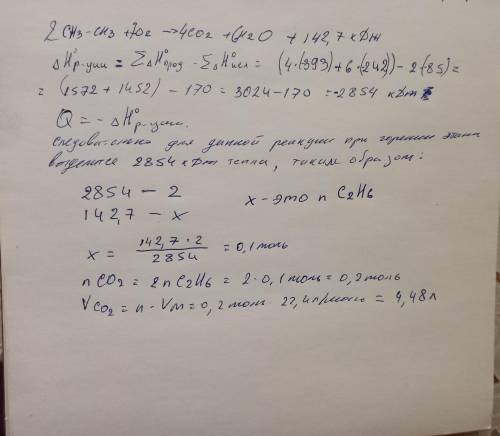 2CH3-CH3 + 7O2 → 4CO2 + 6H2O + 142,7 кДж
ΔH°р-ции = ΣΔH°прод - ΣΔH°исх = (4·(393)+6·(242)) - 2(85) =
= (1572 + 1452) - 170 = 3024 - 170 = -2854 кДж
Q = -ΔH°р-ции.
следовательно для данной реакции при горении этана
выделится 2854 кДж тепла, таким образом:
2854 - 2
142,7 - x x - это n C2H6
x = 142,7·2 / 2854 = 0,1 моль
nCO2 = 2nC2H6 = 2·0,1 моль = 0,2 моль
VCO2 = n·Vm = 0,2 моль · 22,4 л/моль = 4,48 л